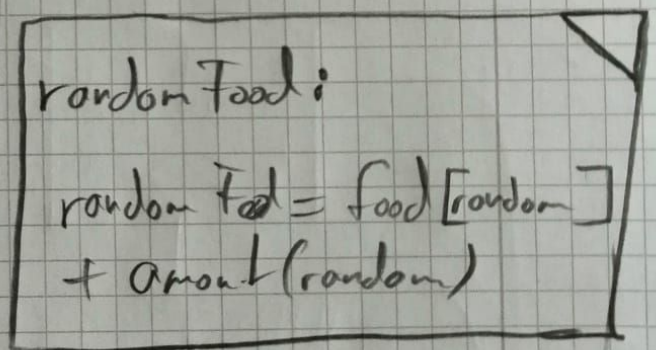 random Food:
random Food = food [random]
+ amount (random)